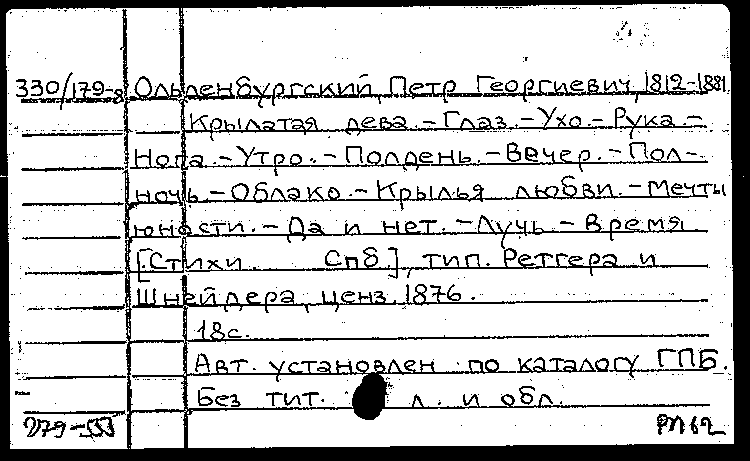 330/179-8 Ольденбургский, Петр Георгиевич, 1812-1881
Крылатая дева.-Глаз.-Ухо.-Рука-
Нога.-Утро.-Полдень.-Вечер.-Пол-
ночь-Облако.-Крылья любви.-Мечты
юности.-Да и нет.-Лучь-Время
[Стихи. Спб.], тип. Ретгера и
Шнейдера, ценз. 1876.
18с.
Авт. установлен по каталогу ГПБ.
Без тит. л. и обл.
РП62